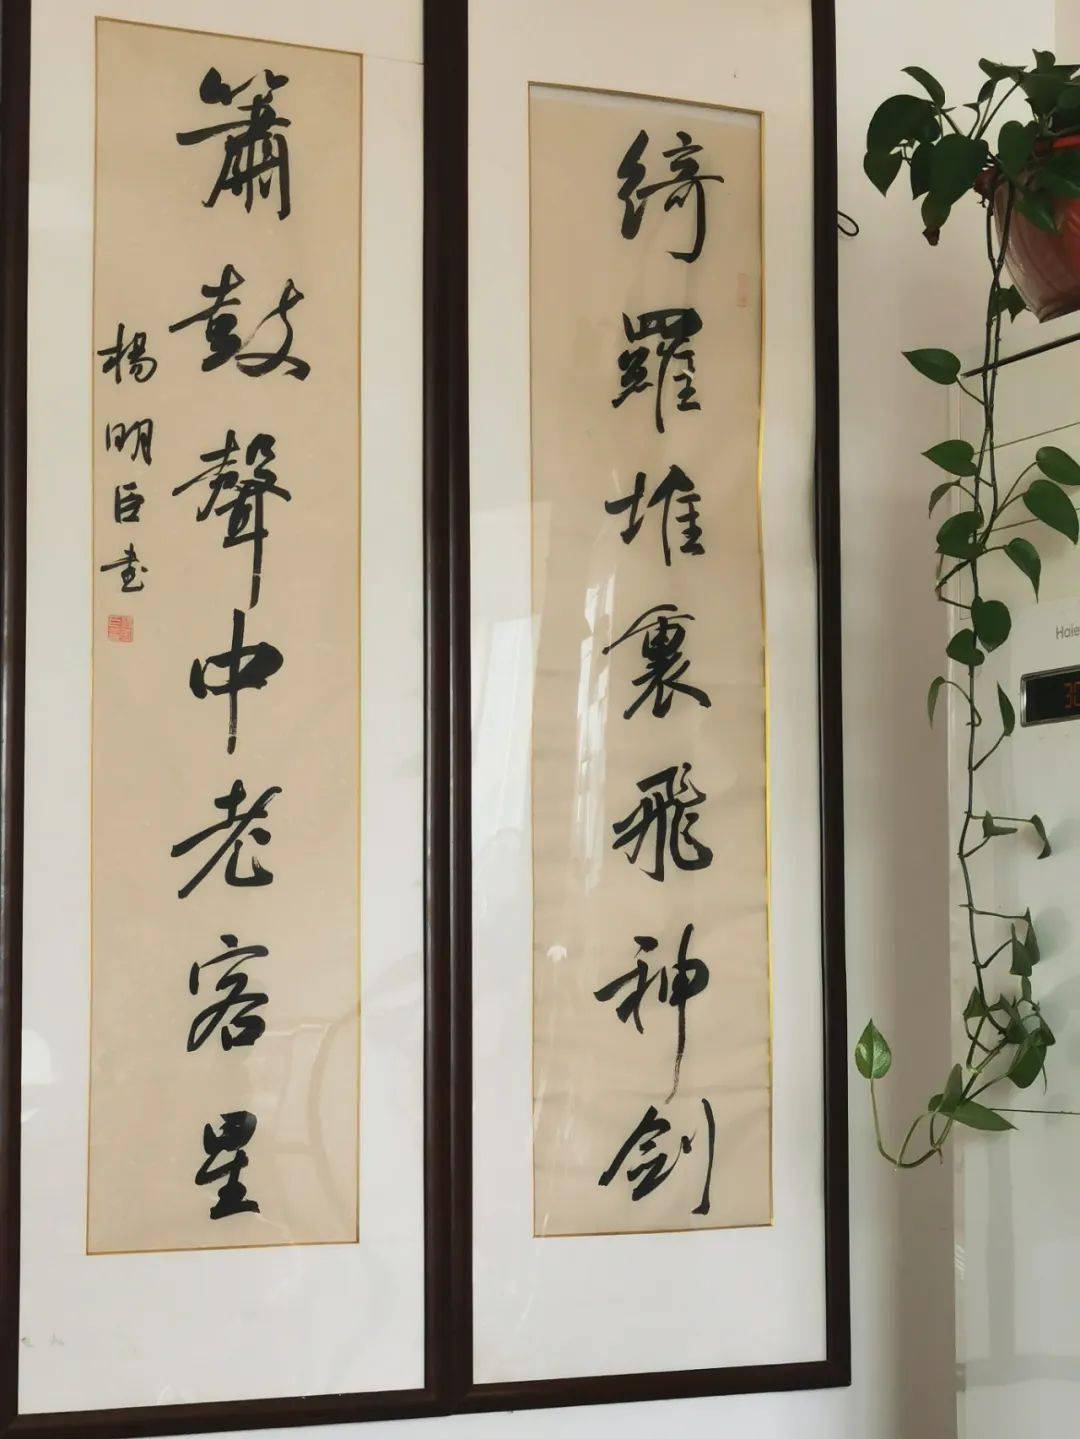 綺羅堆裏飛神劍
簫鼓聲中老客星
楊明臣書
Haie
30